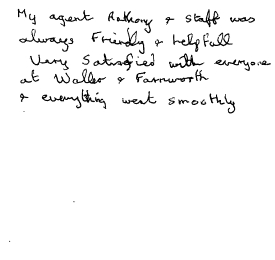 My agent Anthony & staff was
always Friendly & helpfull
Very Satisfied with everyone
at Waller & Farnworth
& everything went smoothly